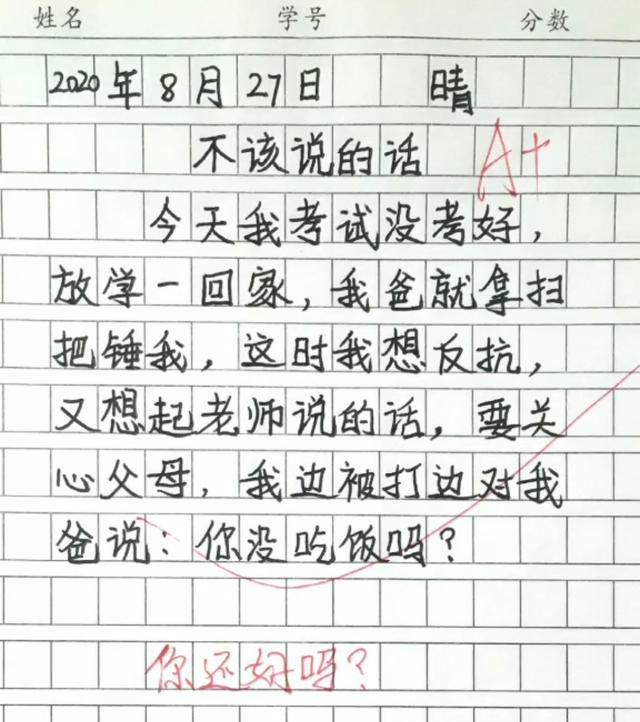 姓名 学号 分数
2020年8月27日 晴
不该说的话 A+
今天我考试没考好，
放学一回家，我爸就拿扫
把锤我，这时我想反抗，
又想起老师说的话，要关
心父母，我边被打边对我
爸说：你没吃饭吗？
你还好吗？